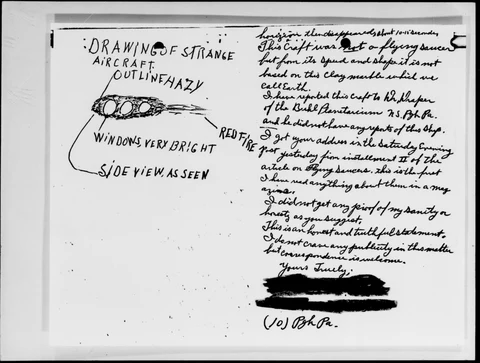 DRAWING OF STRANGE
AIRCRAFT.
OUTLINE HAZY
RED FIRE
WINDOWS, VERY BRIGHT
SIDE VIEW, AS SEEN
horizon then disappeared, about 10-15 seconds
This Craft was not a flying saucer
but from its speed and shape it is not
based on this Clay marble which we
call Earth.
I have reported this craft to Dr. Draper
of the Buhl Planitarium N.S. Pgh Pa.
and he did not have any reports of this ship.
I got your address in the Saturday Evening
post yesterday from installment II of the
article on Flying saucers. this is the first
I have read anything about them in a mag
azine.
I did not get any proof of my sanity or
honesty as you suggest,
This is an honest and truthful statement.
I do not crave any publicity in this matter
but correspondence is welcome.
Yours Truely,
(10) Pgh Pa.